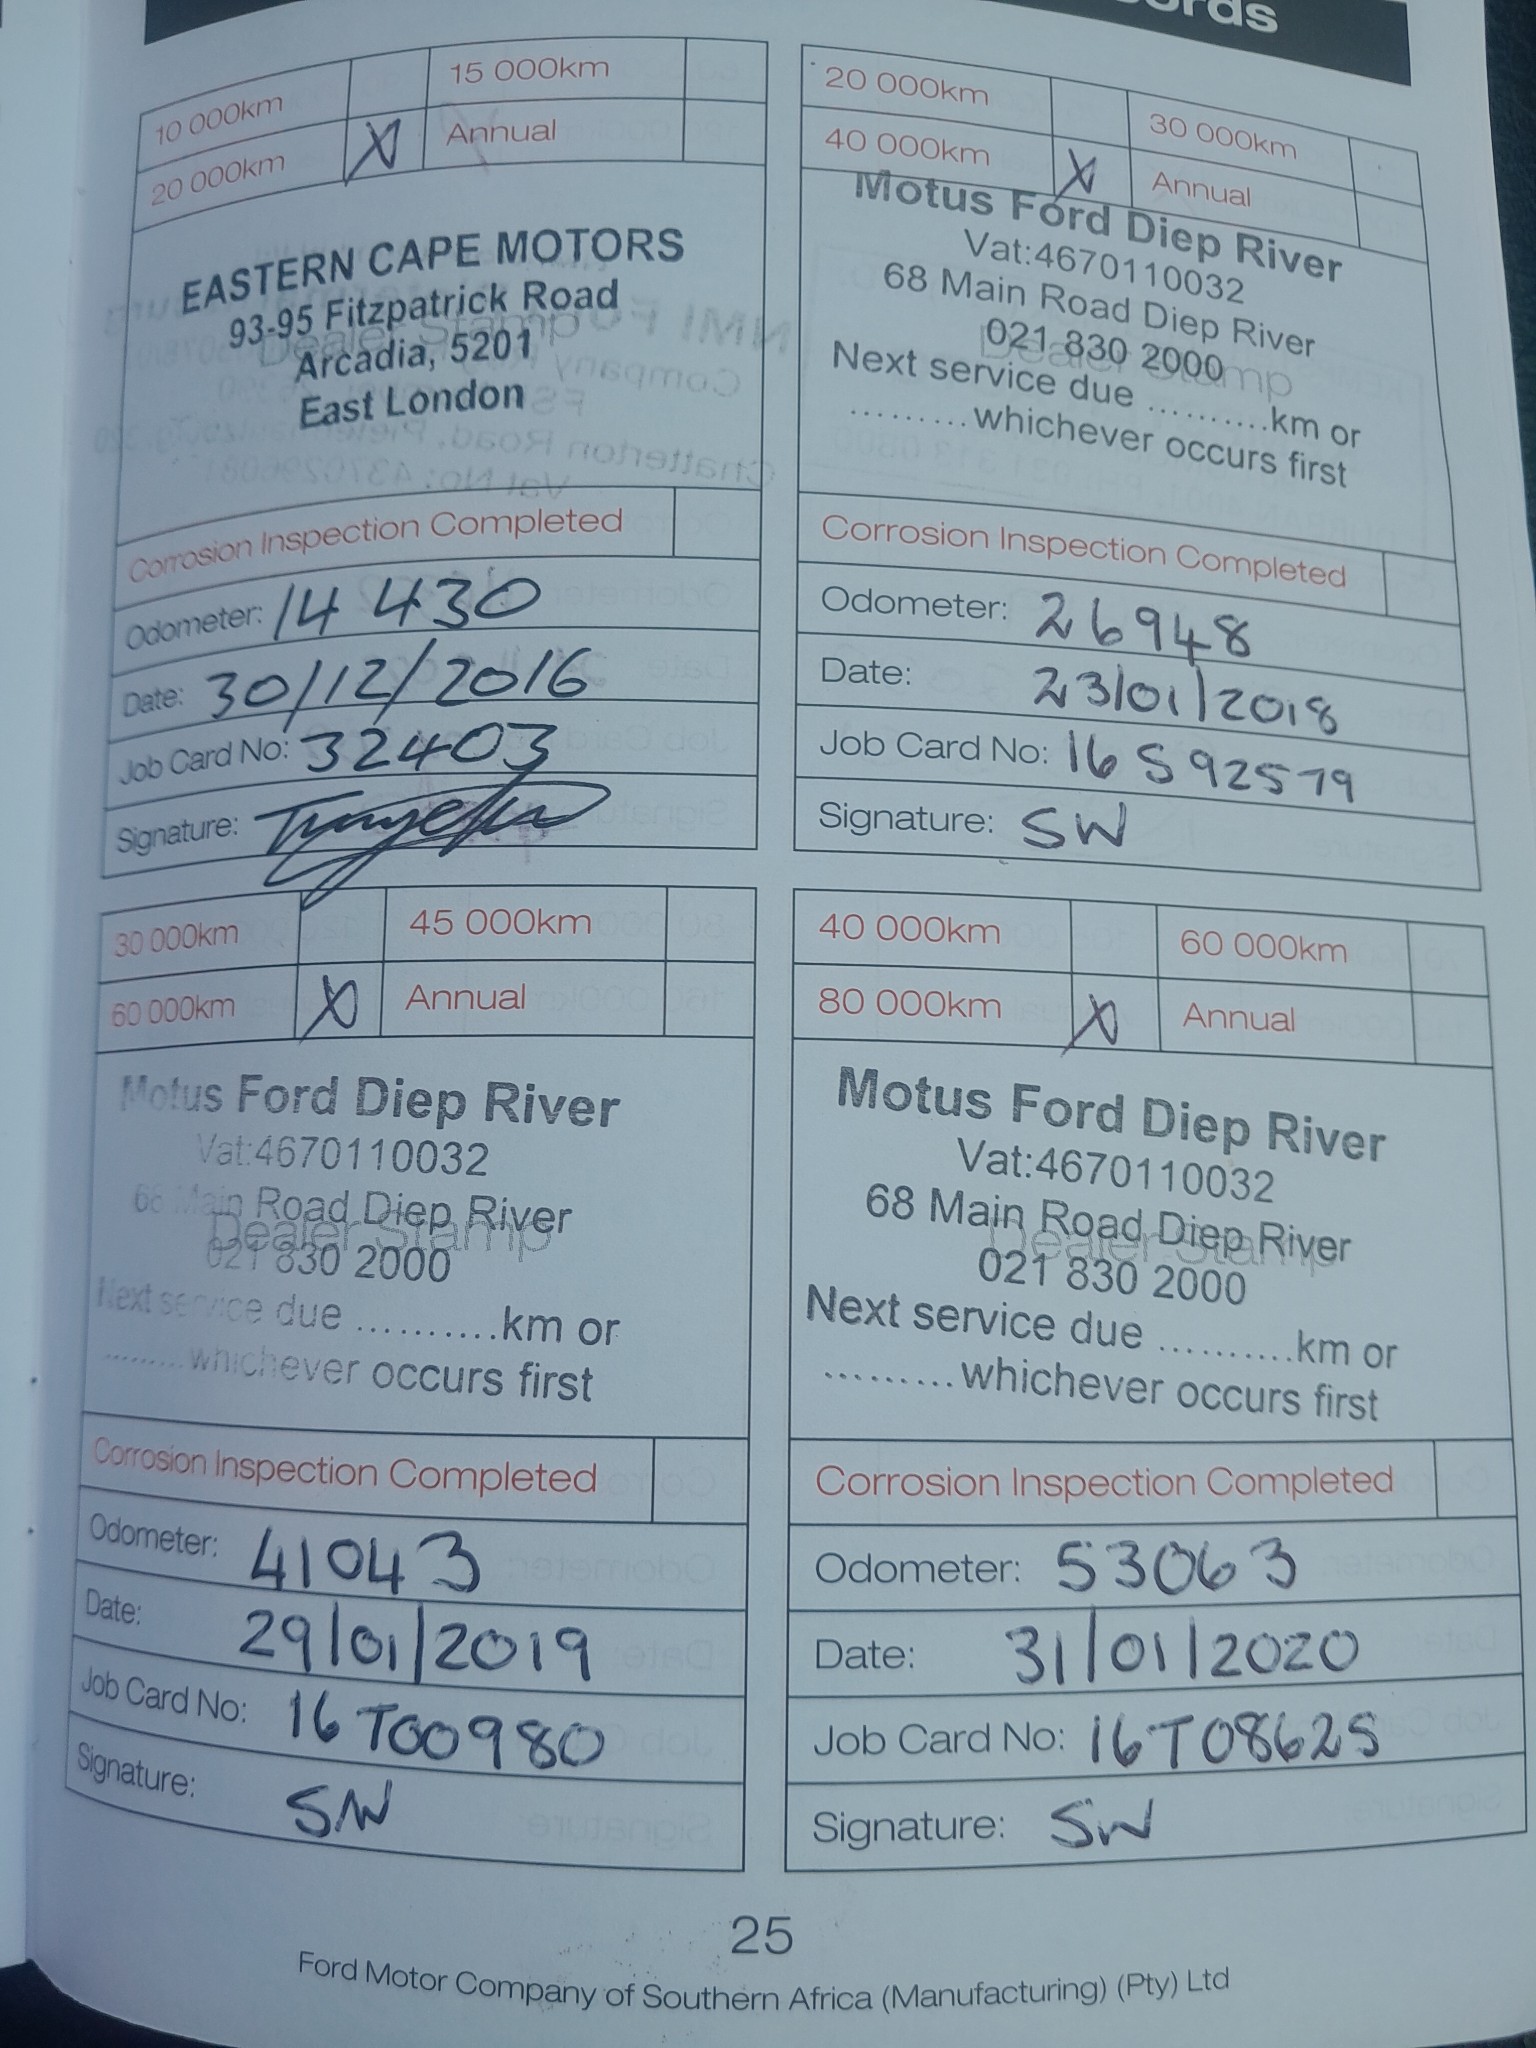 10 000km 15 000km
20 000km X Annual
EASTERN CAPE MOTORS
93-95 Fitzpatrick Road
Dealer Stamp
Arcadia, 5201
East London
Corrosion Inspection Completed
Odometer: 14 430
Date: 30/12/2016
Job Card No: 32403
Signature:
20 000km 30 000km
40 000km X Annual
Motus Ford Diep River
Vat:4670110032
68 Main Road Diep River
021 830 2000
Dealer Stamp
Next service due ..........km or
.........whichever occurs first
Corrosion Inspection Completed
Odometer: 26948
Date: 23/01/2018
Job Card No: 16S92579
Signature: SW
30 000km 45 000km
60 000km X Annual
Motus Ford Diep River
Vat:4670110032
68 Main Road Diep River
Dealer Stamp
021 830 2000
Next service due ..........km or
.........whichever occurs first
Corrosion Inspection Completed
Odometer: 41043
Date: 29/01/2019
Job Card No: 16T00980
Signature: SW
40 000km 60 000km
80 000km X Annual
Motus Ford Diep River
Vat:4670110032
68 Main Road Diep River
Dealer Stamp
021 830 2000
Next service due ..........km or
.........whichever occurs first
Corrosion Inspection Completed
Odometer: 53063
Date: 31/01/2020
Job Card No: 16T08625
Signature: SW
25
Ford Motor Company of Southern Africa (Manufacturing) (Pty) Ltd